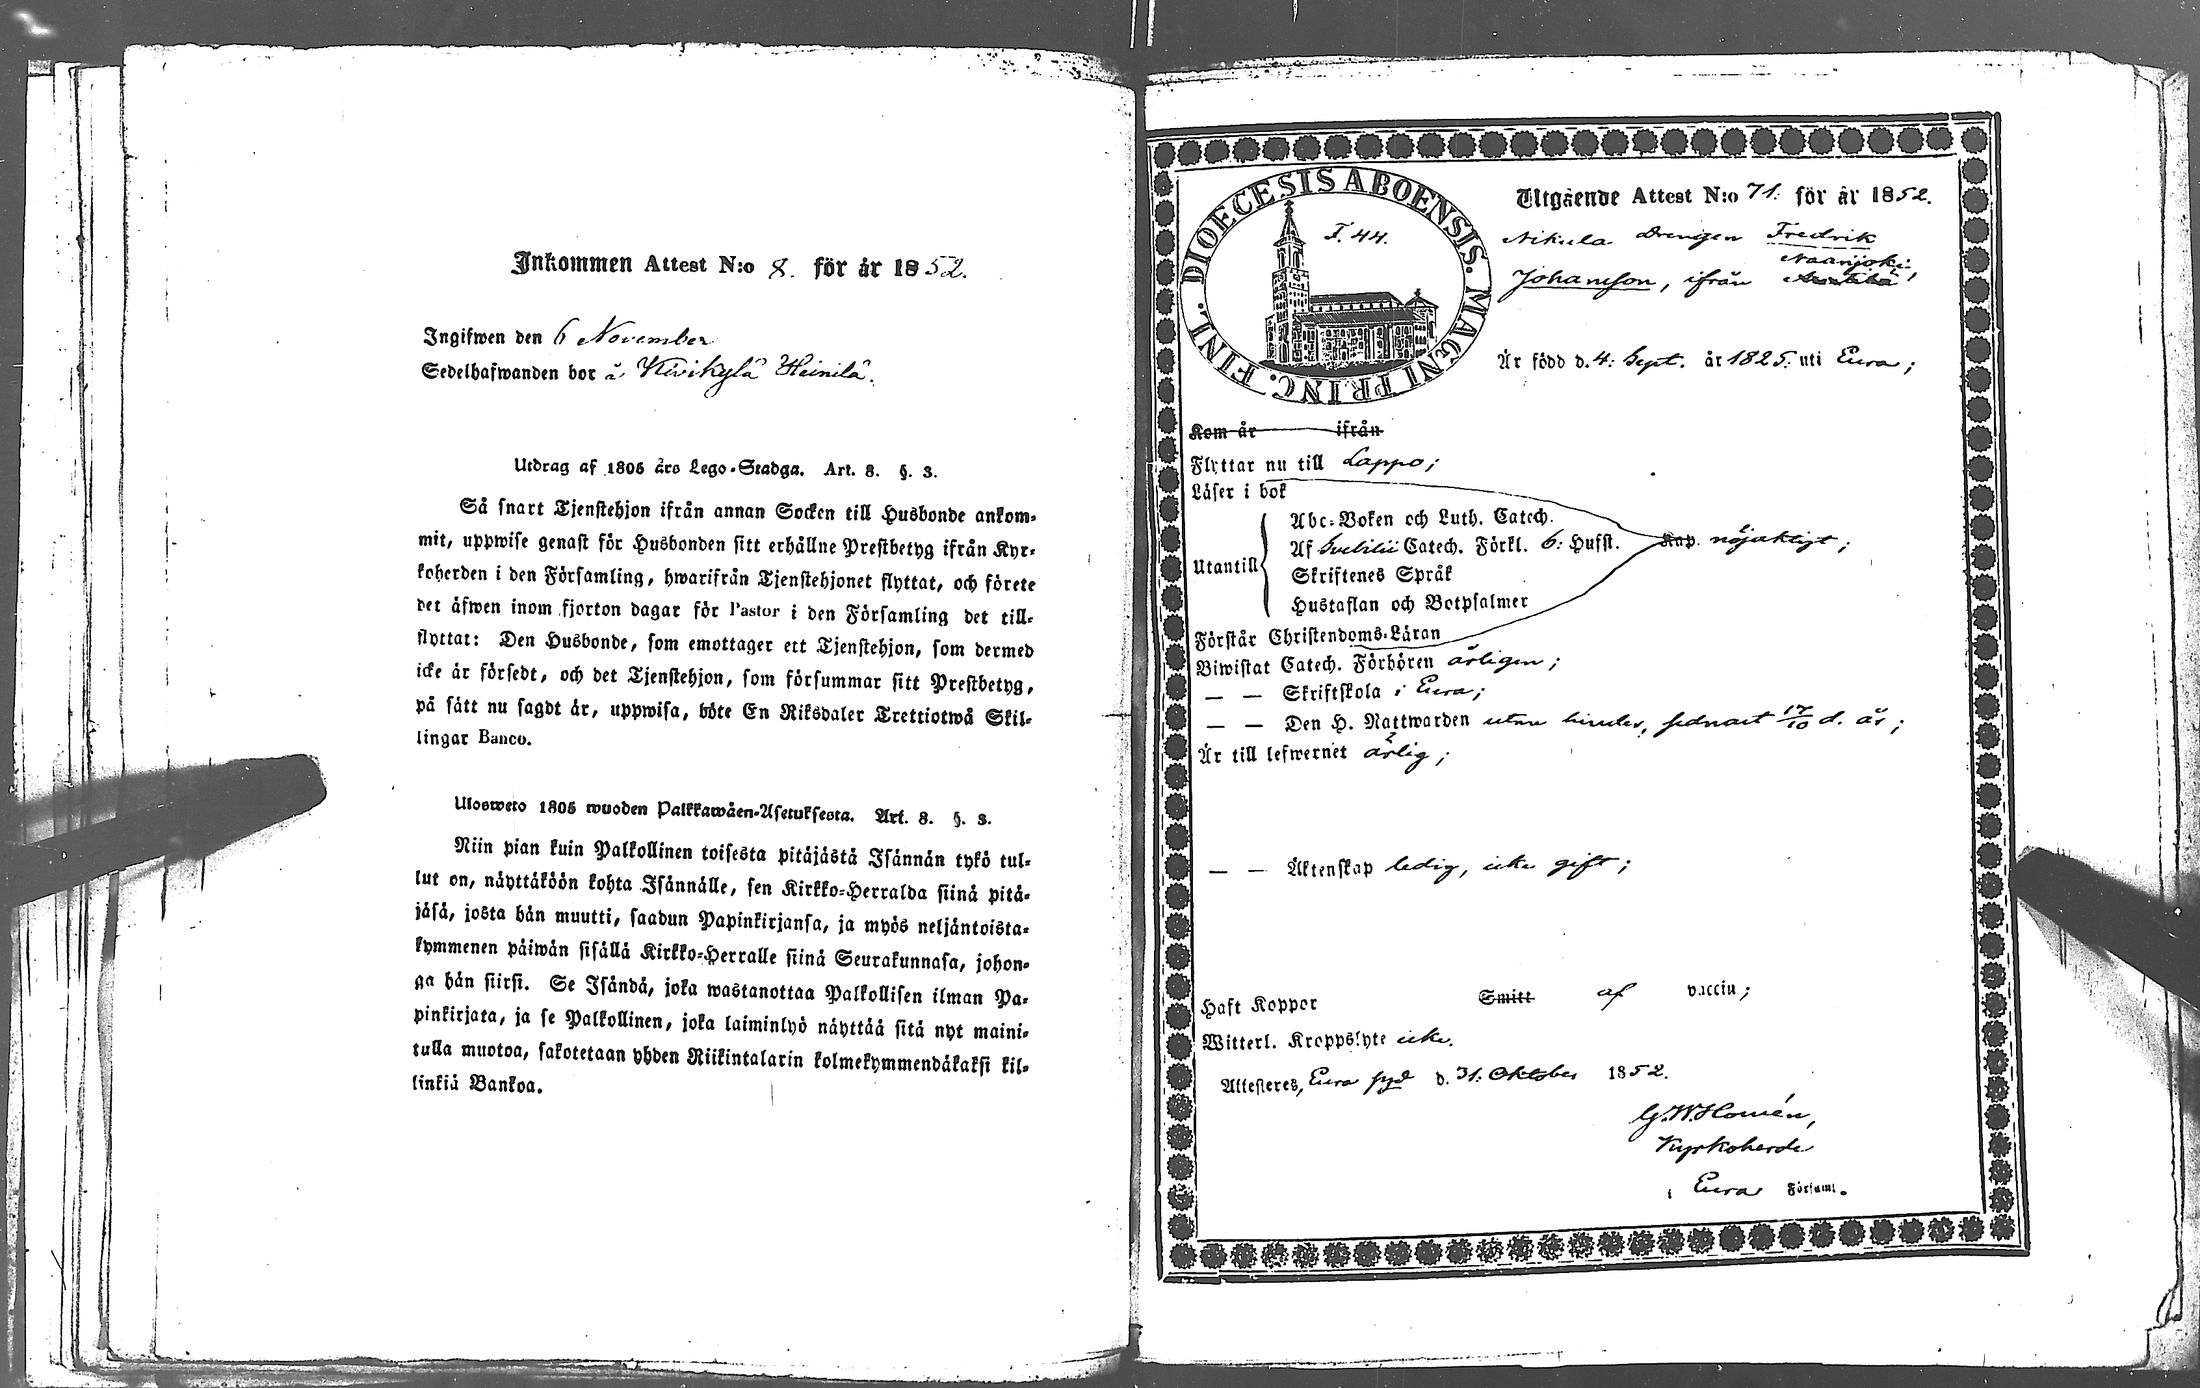 Inkommen Attest N:o 8. för år 1852.
Ingifwen den 6 November
Sedelhafwanden bor å Kivikylä Heinilä.
Utdrag af 1805 års Lego-Stadga. Art. 8. §. 3.
Så snart Tjenstehjon ifrån annan Socken till Husbonde ankom-
mit, uppwise genast för Husbonden sitt erhållne Prestbetyg ifrån Kyr-
koherden i den Församling, hwarifrån Tjenstehjonet flyttat, och förete
det äfwen inom fjorton dagar för Pastor i den Församling det till-
flyttat: Den Husbonde, som emottager ett Tjenstehjon, som dermed
icke är försedt, och det Tjenstehjon, som försummar sitt Prestbetyg,
på sätt nu sagdt är, uppwisa, böte En Riksdaler Trettiotwå Skil-
lingar Banco.
Ulosweto 1805 wuoden Palkkawäen-Asetuksesta. Art. 8. §. 3.
Niin pian kuin Palkollinen toisesta pitäjästä Isännän tykö tul-
lut on, näyttäköön kohta Isännälle, sen Kirkko-Herralda siinä pitä-
jäsä, josta hän muutti, saadun Papinkirjansa, ja myös neljäntoista-
kymmenen päiwän sisällä Kirkko-Herralle siinä Seurakunnasa, johon-
ga hän siirsi. Se Isändä, joka wastanottaa Palkollisen ilman Pa-
pinkirjata, ja se Palkollinen, joka laiminlyö näyttää sitä nyt maini-
tulla muotoa, sakotetaan yhden Riikintalarin kolmekymmendäkaksi kil-
linkiä Bankoa.
DIOECESIS ABOENSIS. MAGNI PRINC. FINL.
F. 44.
Utgående Attest N:o 71. för år 1852.
Nikula Drengen Fredrik
Naanjoki,
Johansson, ifrån
Är född d. 4: Sept. år 1825. uti Eura;
Kom år ifrån
Flyttar nu till Lappo;
Läser i bok
Abc-Boken och Luth. Catech.
Utantill Af Svebilii Catech. Förkl. 6: Hufst. Kap. nöjaktigt;
Skriftenes Språk
Hustaflan och Botpsalmer
Förstår Christendoms-Läran
Biwistat Catech. Förhören årligen;
— — Skriftskola i Eura;
— — Den H. Nattwarden utan hinder, sednast 17/10 d. år;
Är till lefwernet ärlig;
— — Äktenskap ledig, icke gift;
Haft Koppor Smitt af vaccin;
Witterl. Kroppslyte icke.
Attesteres, Eura pgd d. 31. Oktober 1852.
G. W. Homén,
Kyrkoherde
i Eura Församl.